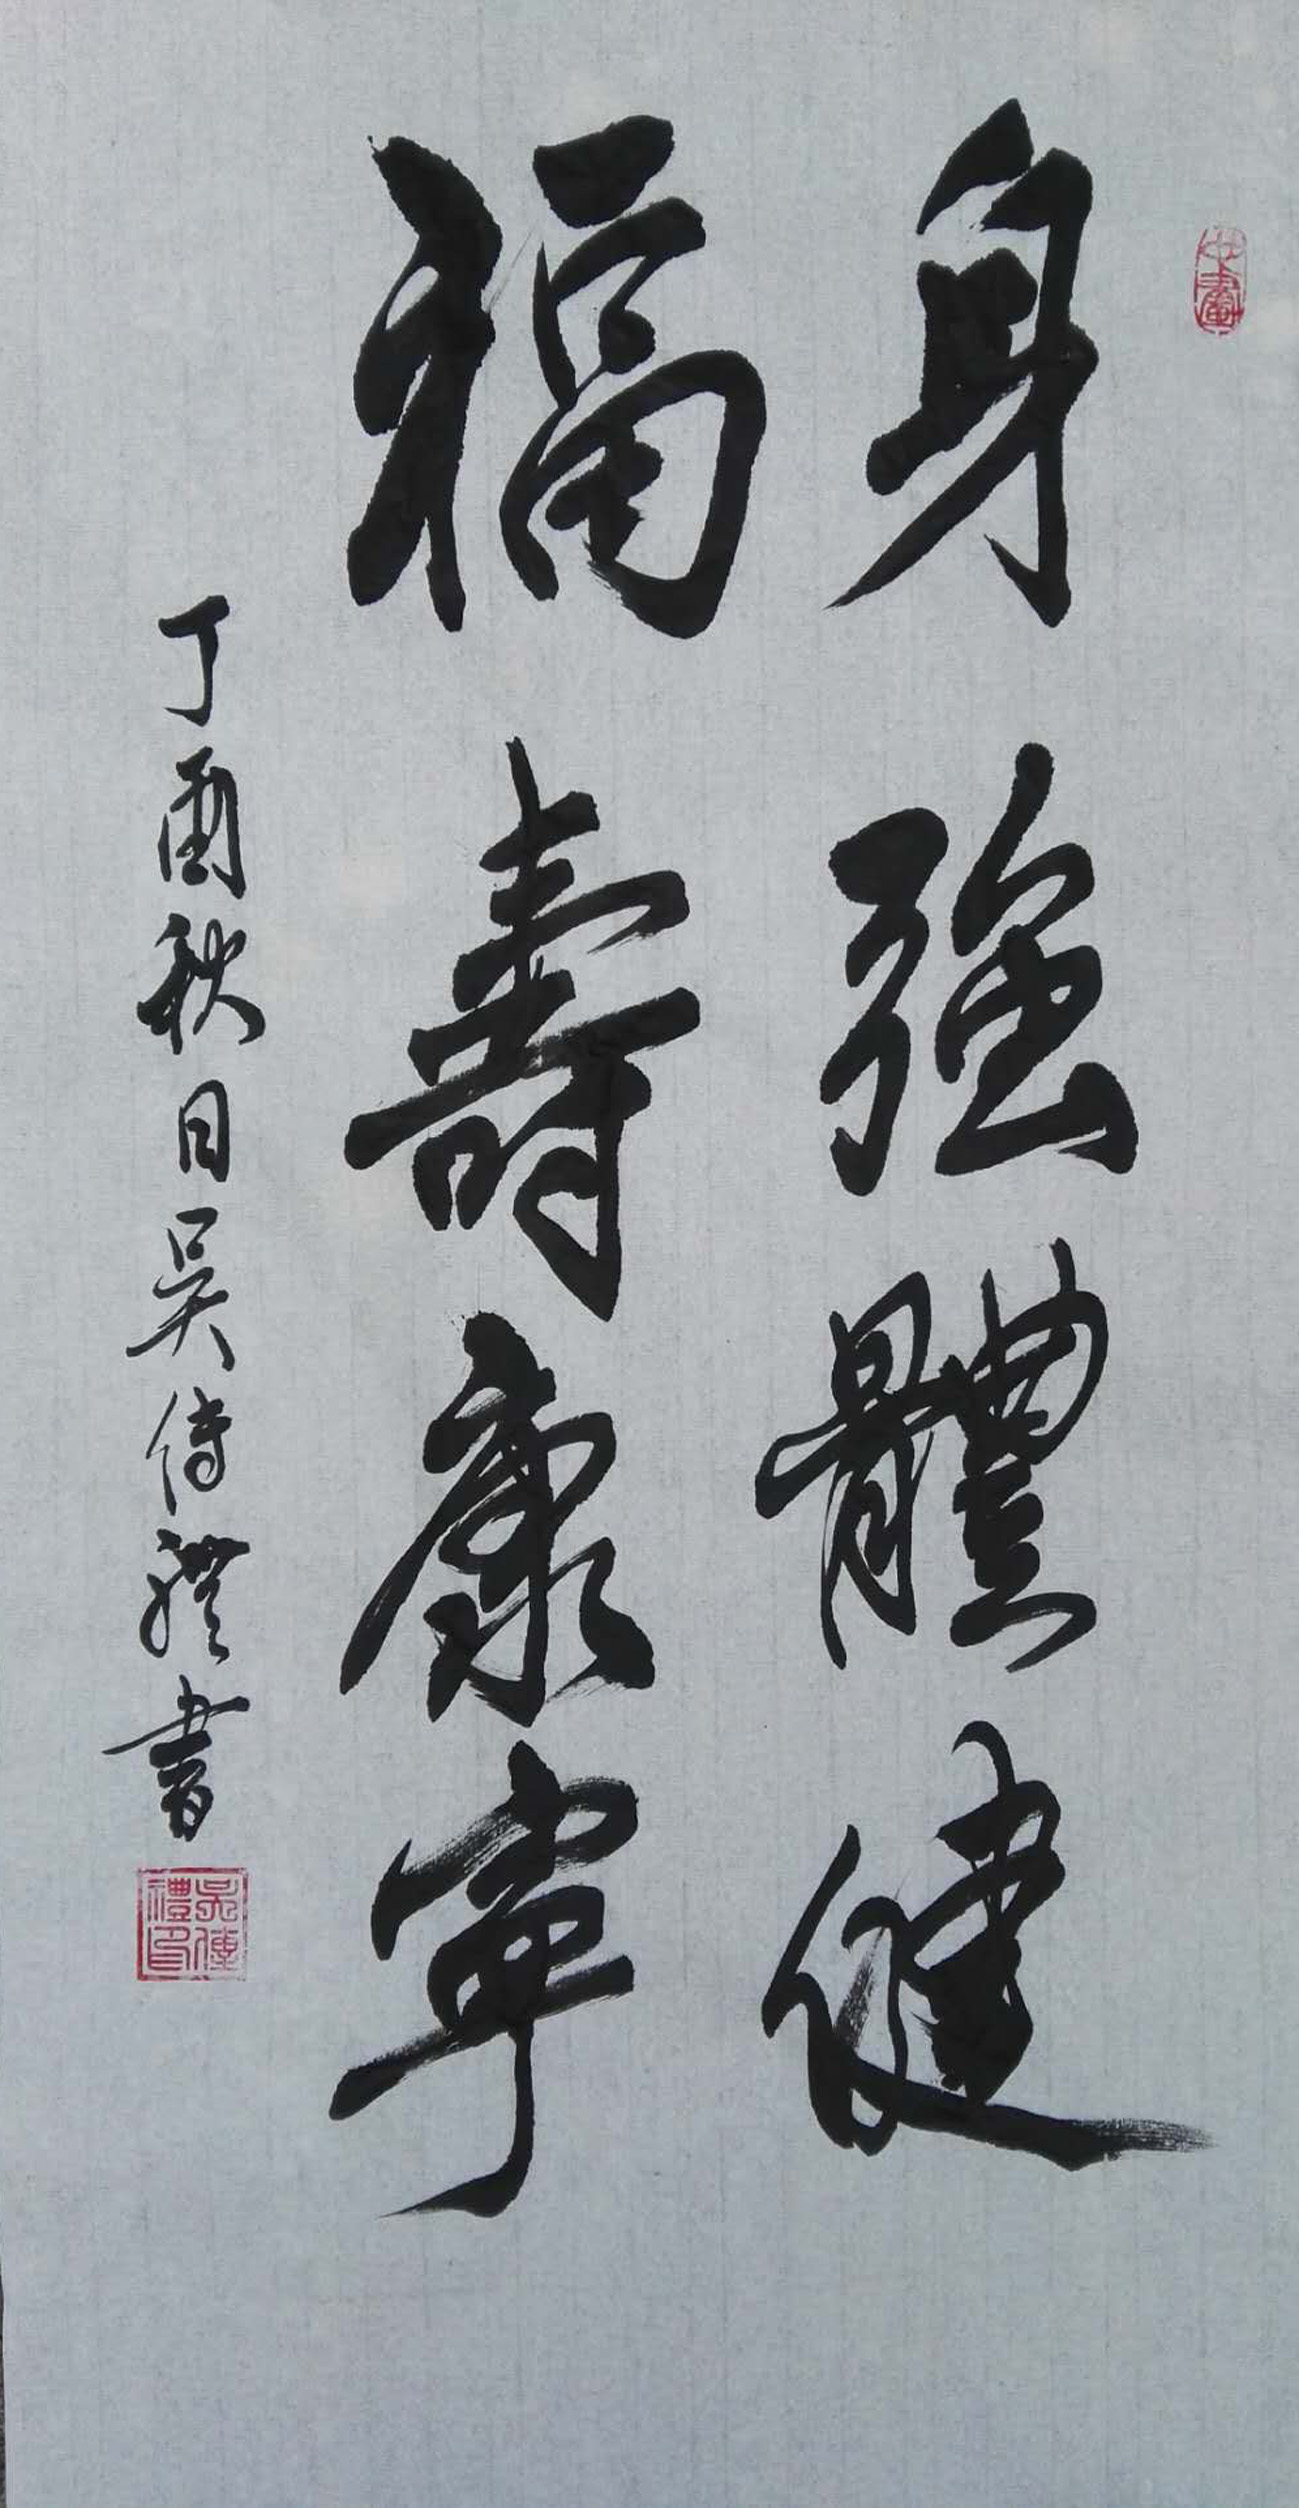 身強體健
福壽康寧
丁酉秋日吳傳禮書
吳傳禮印